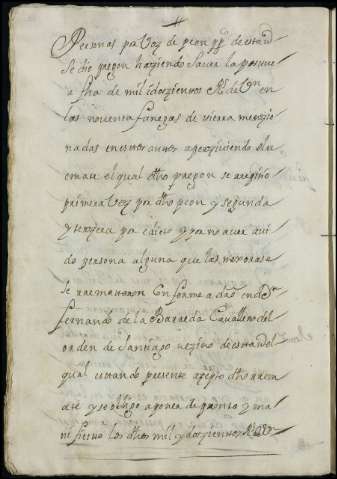 Personas por voz de peon pp.co de esta vd
se dio pregon haziendo saver la postura
a fha de mil i doszientos Rs de vn en
las noventa fanegas de tierra menzio
nadas en estos autos aperziviendo el re
mate el qual dho pregon se aperzivio
primera vez por dho peon y segunda
y terzera por edicto y por no aver avi
do persona alguna que las mexorase
se rremataron Conforme a dro en Dn
fernando de la Barreda Cavallero del
orden de Santiago vezino de esta vd el
qual estando presente azepto dho rrema
te y se obligo a poner de pronto y ma
nifiesto los dhos mil y doszientos Rs de vn